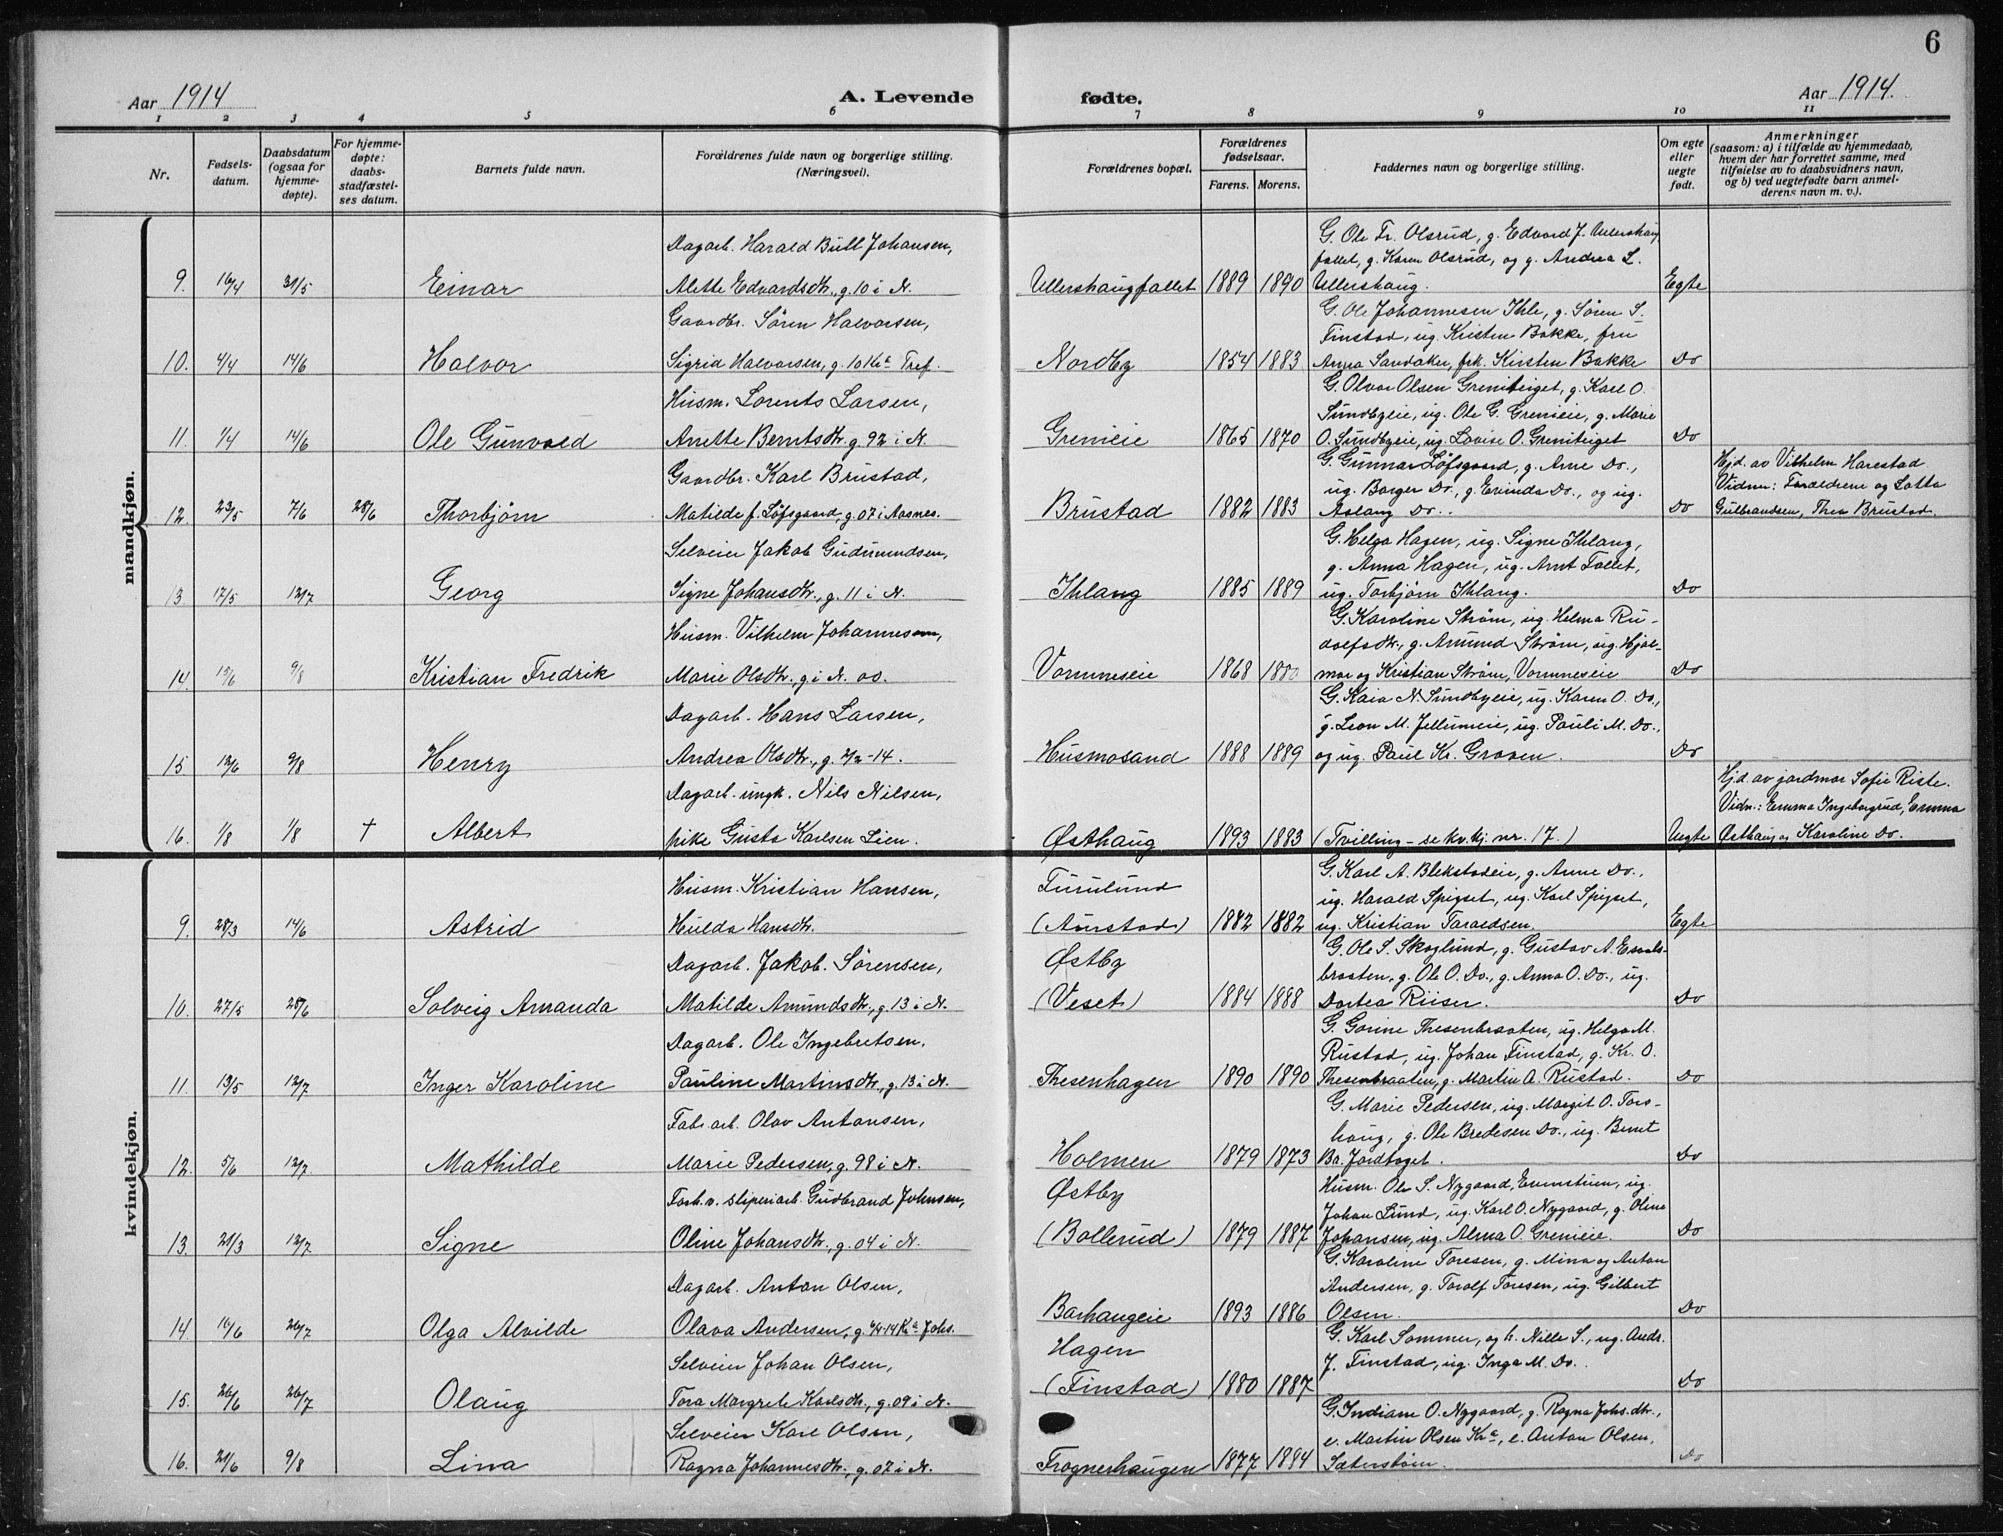 6
Aar 1914
A. Levende fødte.
Aar 1914.
1 2 3 4 5 6 7 8 9 10 11
Nr.
Fødsels-
datum.
Daabsdatum
(ogsaa for
hjemme-
døpte).
For hjemme-
døpte:
daabs-
stadfæstel-
ses datum.
Barnets fulde navn.
Forældrenes fulde navn og borgerlige stilling.
(Næringsvei).
Forældrenes bopæl.
Forældrenes
fødselsaar.
Farens. Morens.
Faddernes navn og borgerlige stilling.
Om egte
eller
uegte
født.
Anmerkninger
(saasom: a) i tilfælde av hjemmedaab,
hvem der har forrettet samme, med
tilføielse av to daabsvidners navn,
og b) ved uegtefødte barn anmel-
derens navn m. v.).
mandkjøn.
9. 16/4 31/5 Einar
Dagarb. Harald Bull Johansen,
Alette Edvardsdtr., g. 10 i N.
Ullershaugfallet 1889 1890
G. Ole Fr. Olsrud, g. Edvard J. Ullershaug
fallet, g. Karen Olsrud, og g. Andrea L.
Ullershaug.
Egte
10. 4/4 14/6 Halvor
Gaardbr. Søren Halvorsen,
Sigrid Halvorsen, g. 10 Kra Tref.
Nordby 1854 1883
G. Ole Johannesen Ihle, g. Søren S.
Finstad, ug. Kristen Bakke, fru
Anna Sandaker, frk. Kirsten Bakke
Do
11. 1/4 14/6 Ole Gunvald
Husm. Lorents Larsen,
Anette Berntsdtr. g. 92 i N.
Grenieie 1865 1870
G. Olvar Olsen Greniteiget, g. Karl O.
Sundbyeie, ug. Ole G. Grenieie, g. Marie
O. Sundbyeie, ug. Lovise O. Greniteiget
Do
12. 23/5 7/6 28/6 Thorbjørn
Gaardbr. Karl Brustad,
Matilde f. Løfsgaard, g. 07 i Aasnes.
Brustad 1882 1883
G. Gunnar Løfsgaard, g. Arne Do.,
ug. Borger Do., g. Evinda Do., og ug.
Aslaug Do..
Do
Hjd. av Vilhelm Harestad
Vidner: Forældrene og Lotta
Gulbrandsen, Thea Brustad.
13. 17/5 12/7 Georg
Selveier Jakob Gudmundsen,
Signe Johansdtr., g. 11 i N.
Ihlang 1885 1889
G. Helga Hagen, ug. Signe Ihlang,
g. Anna Hagen, ug. Arnt Fallet,
ug. Torbjørn Ihlang.
Do
14. 15/6 9/8 Kristian Fredrik
Husm. Vilhelm Johannesen,
Marie Olsdtr., g. i N. 00.
Vormneseie 1868 1880
G. Karoline Strøm, ug. Helma Ru-
dolfsdtr., g. Amund Strøm, ug. Hjal-
mar og Kristian Strøm, Vormneseie
Do
15 12/6 9/8 Henry
Dagarb. Hans Larsen,
Andrea Olsdtr., g. 7/2-14.
Husmosand 1888 1889
G. Kaia N. Sundbyeie, ug. Karen O. Do.,
g. Leon M. Jellumeie, ug. Pauli M. Do.,
og ug. Paul Kr. Graven.
Do
16. 1/8 1/8 † Albert
Dagarb. ungk. Nils Nilsen,
pike Gusta Karlsen Lien.
Østhaug 1893 1883
(Tvilling - se kv.kj. nr. 17.)
Uegte
Hjd. av jordmor Sofie Riste.
Vidn.: Emma Ingeborgrud, Emma
Østhaug og Karoline Do.
kvindekjøn.
9. 28/3 14/6 Astrid
Husm. Kristian Hansen,
Hulda Hansdtr.
Furulund
(Aurstad) 1882 1882
G. Karl A. Blekstadeie, g. Anne Do.,
ug. Harald Spigset, ug. Karl Spigset,
ug. Kristian Taraldsen.
Egte
10. 27/5 28/6 Solveig Amanda
Dagarb. Jakob. Sørensen,
Matilde Amundsdtr., g. 13 i N.
Østby
(Veset) 1884 1888
G. Ole S. Skoglund, g. Gustav A.
braaten, g. Ole O. Do., g. Anna O. Do., ug.
Dortea Riiser.
Do
11. 13/5 12/7 Inger Karoline
Dagarb. Ole Ingebretsen,
Pauline Martinsdtr., g. 13 i N.
Thesenhagen 1890 1890
G. Gorine Thesenbraaten, ug. Helga M.
Rustad, ug. Johan Finstad, g. Kr. O.
Thesenbraaten, g. Martin A. Rustad.
Do
12. 5/6 12/7 Mathilde
Fabr. arb. Olav Antonsen,
Marie Pedersen, g. 98 i N.
Holmen 1879 1873
G. Marie Pedersen, ug. Margit O. Tors-
haug, g. Ole Bredesen Do., ug. Bernt
Br. Jordtoget.
Do
13. 21/3 12/7 Signe
Forh. v. sliperiarb. Gudbrand Johnsen,
Oline Johansdtr., g. 04 i N.
Østby
(Bollerud) 1879 1887
Husm. Ole S. Nygaard, Evenstuen, ug.
Johan Lund, ug. Karl O. Nygaard, g. Olina
Johansen, ug. Alma O. Grenieie.
Do
14. 16/6 26/7 Olga Alvilde
Dagarb. Anton Olsen,
Olava Andersen, g. 4/4-14 Kra Johs.
Barhaugeie 1893 1886
G. Karoline Toresen, g. Mina og Anton
Andersen, g. Torolf Toresen, ug. Gilbert
Olsen.
Do
15. 26/6 26/7 Olaug
Selveier Johan Olsen,
Tora Margrete Karlsdtr., g. 09 i N.
Hagen
(Finstad) 1880 1887
G. Karl Sommer, og h. Nille S., ug. Andr.
J. Finstad, ug. Inga M. Do..
Do
16. 21/6 9/8 Lina
Selveier Karl Olsen,
Ragna Johannesdtr., g. 07 i N.
Frognerhaugen 1877 1884
G. Indiane O. Nygaard, g. Ragna Johs.dtr.,
e. Martin Olsen Kra, e. Anton Olsen,
Sæterstøm.
Do